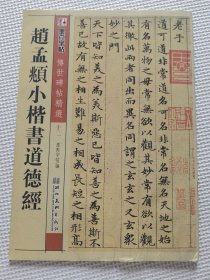 老子
道可道非常道名可名非常名無名天地之始
有名萬物之母常無欲以觀其妙常有欲以觀
其徼此兩者同出而異名同謂之玄玄之又玄衆
妙之門
天下皆知美之為美斯惡已皆知善之為善斯不
善已故有無之相生難易之相成長短之相形高
傳世碑帖精選
十二
趙孟頫小楷書道德經